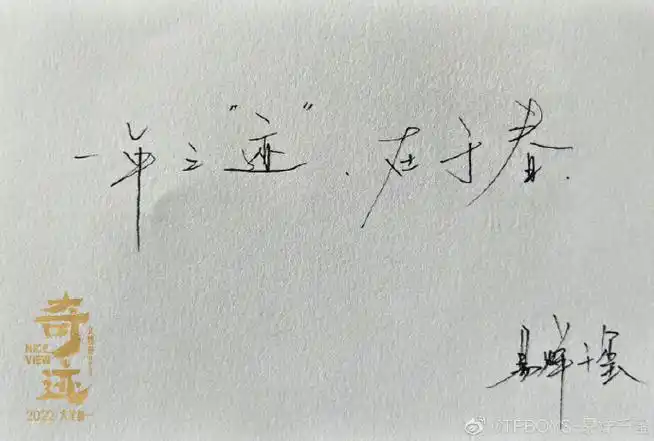 一年之“迹”.在于春.
奇迹
NICE
VIEW
2022 大年初一
易烊千玺
@TFBOYS-易烊千玺